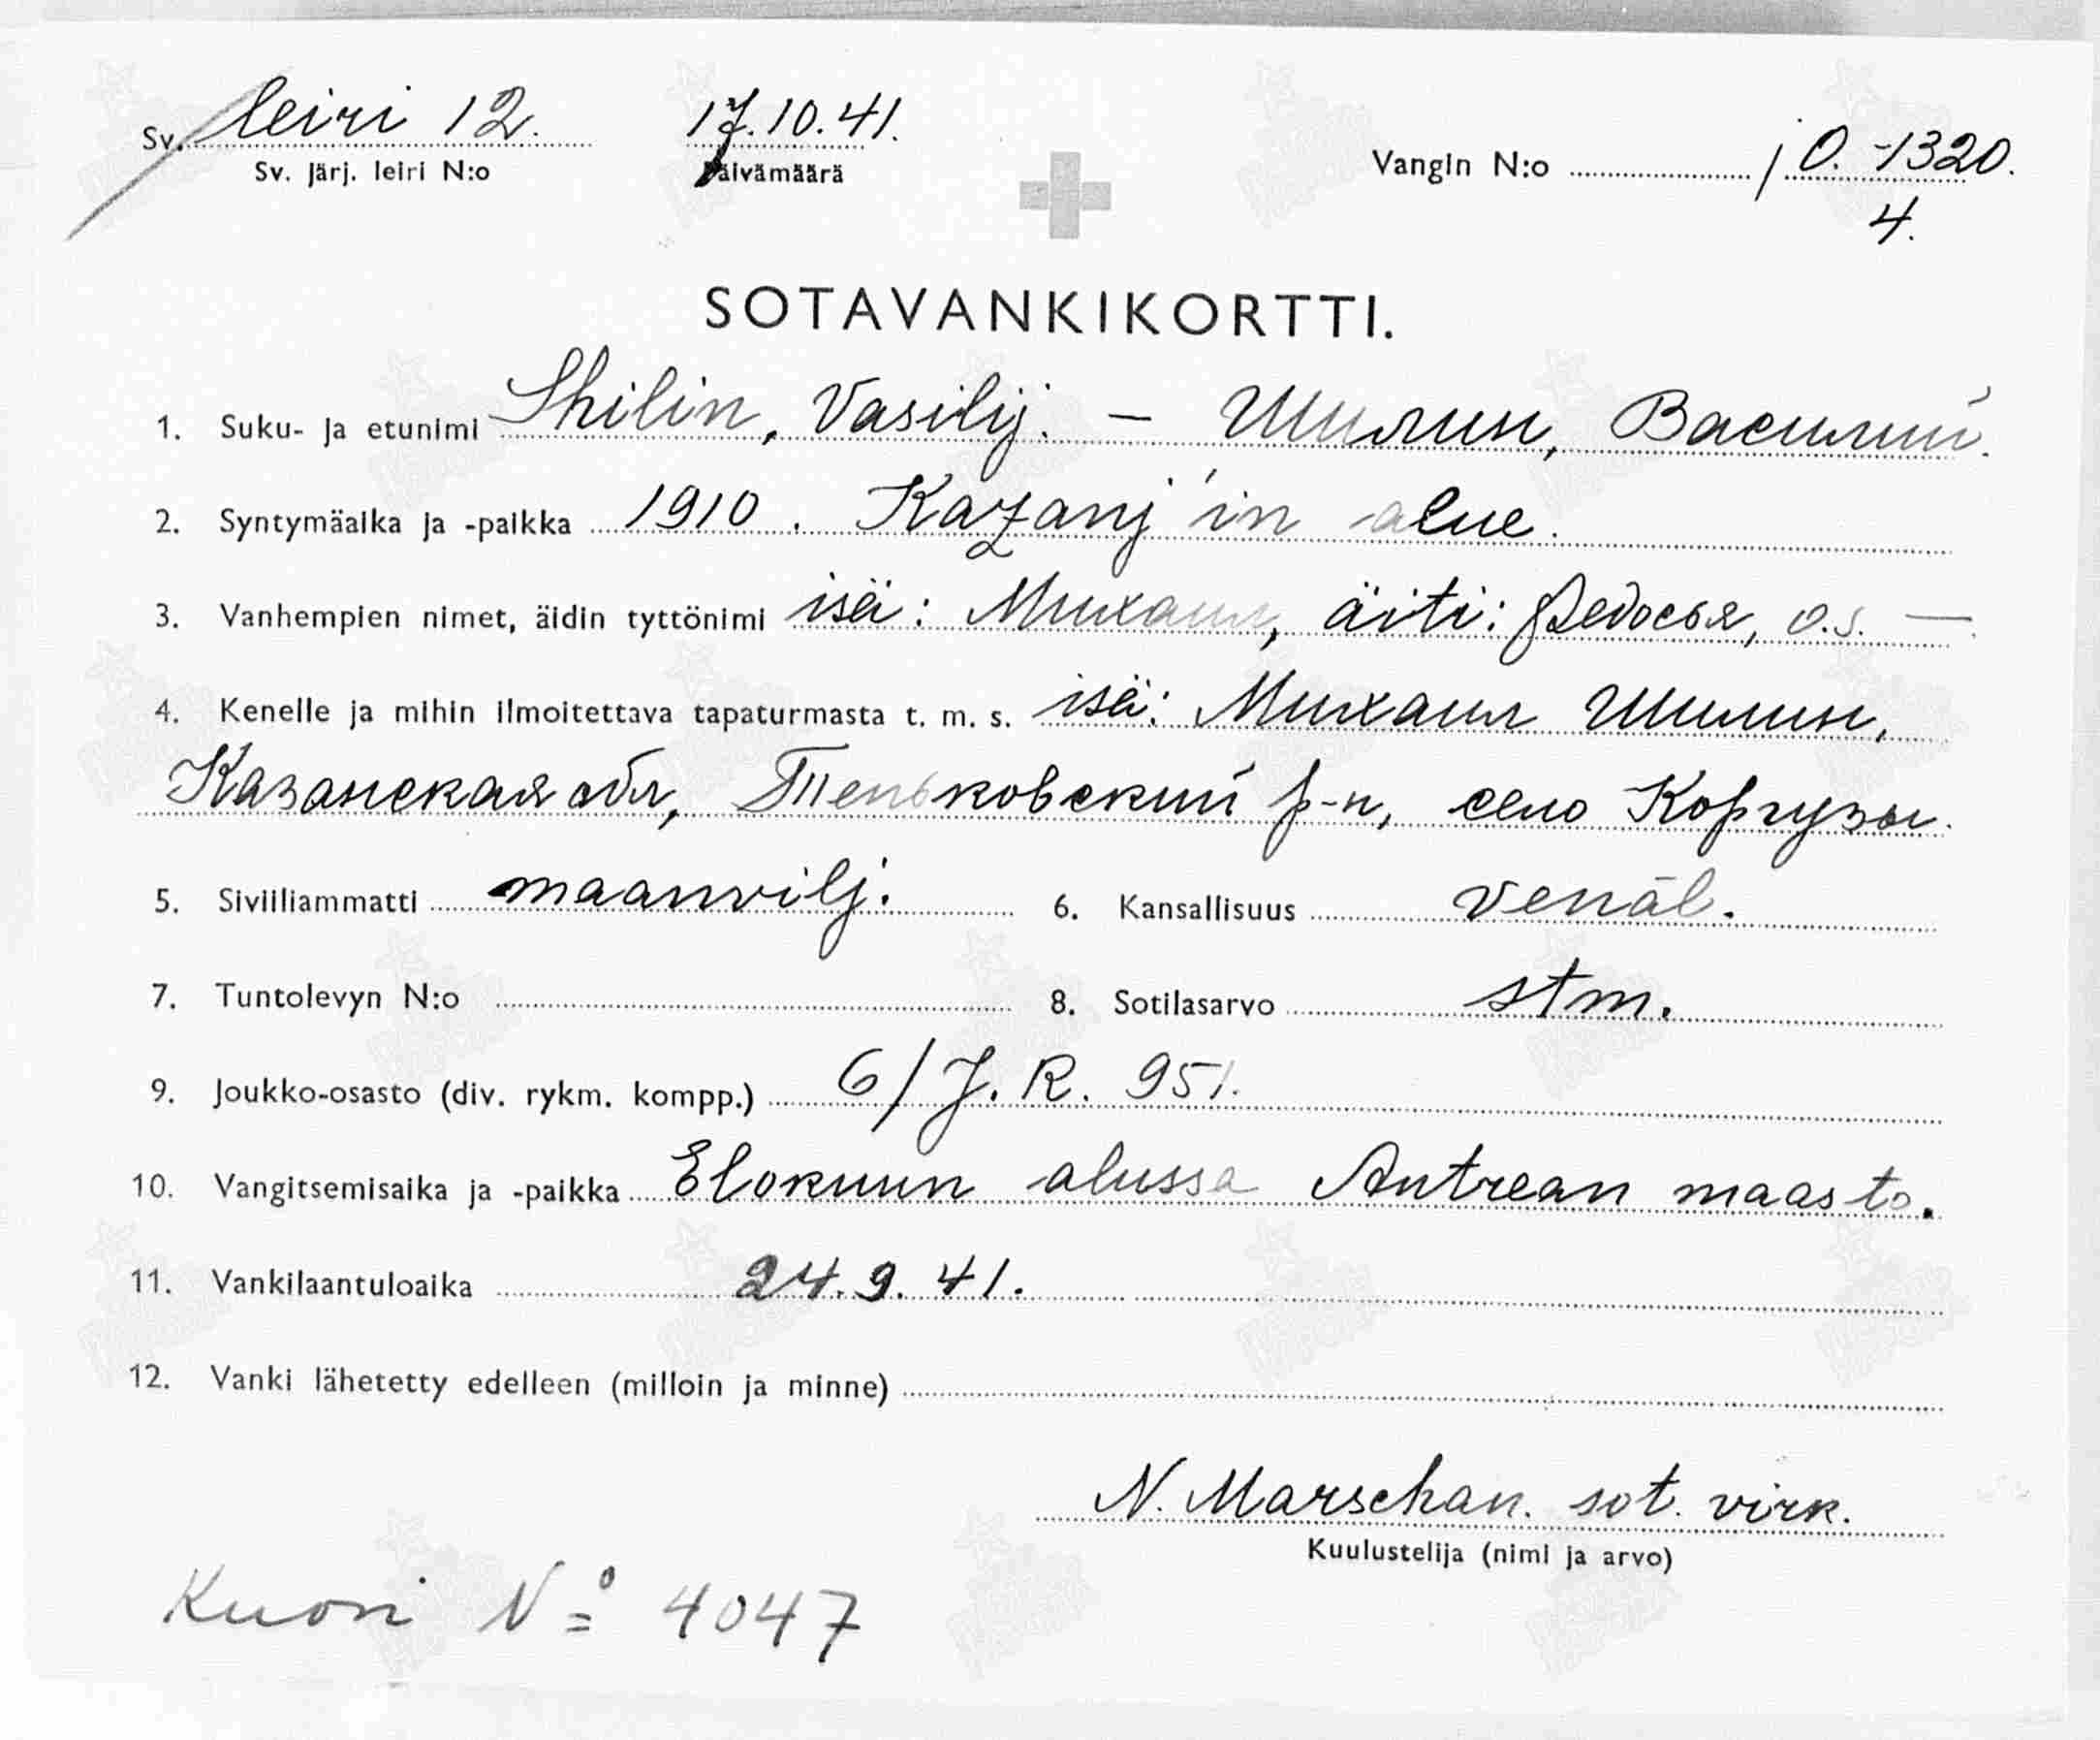 Sv. leiri 12. 17.10.41. Vangin N:o / O.-1320.
Sv. Järj. leiri N:o Päivämäärä 4.
SOTAVANKIKORTTI.
1. Suku- ja etunimi Shilin, Vasilij. – Шилин, Василий.
2. Syntymäaika ja -paikka 1910. Kazanj'in alue.
3. Vanhempien nimet, äidin tyttönimi isä: Михаил, äiti: Федосья, o.s. —
4. Kenelle ja mihin ilmoitettava tapaturmasta t. m. s. isä: Михаил Шилин,
Казанская обл, Теньковский р-н, село Коргузы.
5. Siviiliammatti maanvilj. 6. Kansallisuus venäl.
7. Tuntolevyn N:o 8. Sotilasarvo stm.
9. Joukko-osasto (div. rykm. kompp.) 6/J.R. 951.
10. Vangitsemisaika ja -paikka Elokuun alussa Antrean maasto.
11. Vankilaantuloaika 24.9.41.
12. Vanki lähetetty edelleen (milloin ja minne)
N. Marschan. sot. virk.
Kuulustelija (nimi ja arvo)
Kuori № 4047